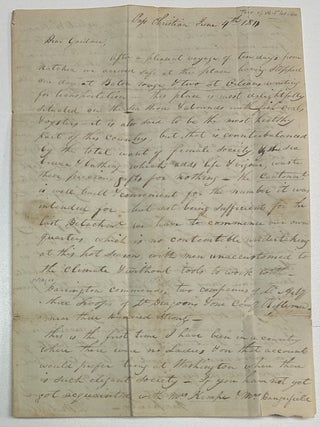 Pass Christian June 4th 181
Dear Gardner,
After a pleasant voyage of ten days from
Natchez we arrived safe at this place having stopped
one day at Baton rouge & two at Orleans waiting
for transportation. This place is most delightfully
situated on the Sea Shore & abounds with
& oysters — it is also said to be the most healthy
part of this country but that is counterbalanced
by the total want of female society
which adds
their precious gifts for nothing — the Cantonment
is well built & convenient for the number it was
intended for but not being sufficient for the
last Detachment we have to commence our own
quarters which is no contemptible undertaking
at this hot season with men unaccustomed to
the Climate & without tools to work with
Carrington commands two companies of Lt Arty
three Troops of Lt Dragoons & one Comp Riflemen
more than hundred Strong —
this is the first time I have been in a country
where there were no Ladies & on that account
would prefer being at Washington where there
is such elegant society — If you have not yet
got acquainted with Mrs